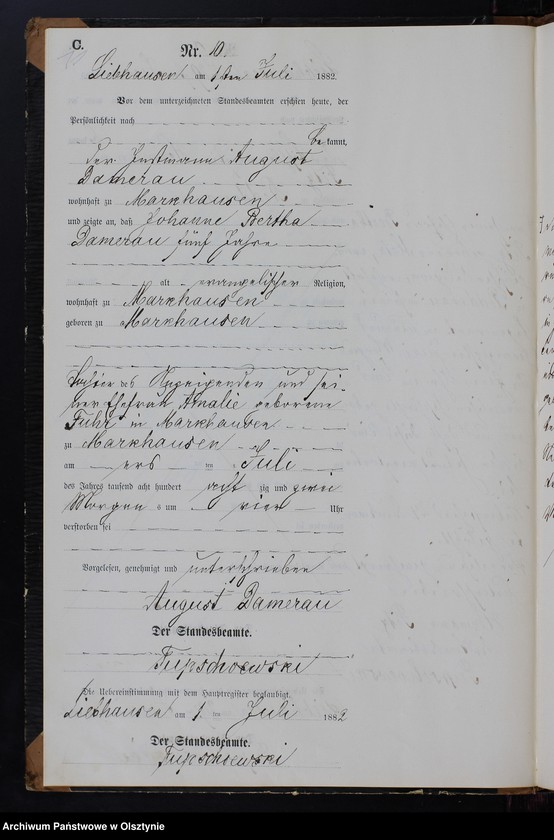 C.
Nr. 10.
Liebhausen am 1ten Juli 1882.
Vor dem unterzeichneten Standesbeamten erschien heute, der
Persönlichkeit nach
be kannt,
der Instmann August
Damerau
wohnhaft zu Markhausen
und zeigte an, daß Johanne Bertha
Damerau fünf Jahre
alt evangelischer Religion,
wohnhaft zu Markhausen
geboren zu Markhausen
Tochter des Anzeigenden und sei-
ner Ehefrau Amalie geborene
Fuhr in Markhausen
zu Markhausen
am ers im Juli
des Jahres tausend acht hundert acht zig und zwei
Morgen s um vier Uhr
verstorben sei
Vorgelesen, genehmigt und unterschrieben
August Damerau
Der Standesbeamte.
Die Uebereinstimmung mit dem Hauptregister beglaubigt.
Liebhausen am 1. ten Juli 1882
Der Standesbeamte.
Archiwum Państwowe w Olsztynie